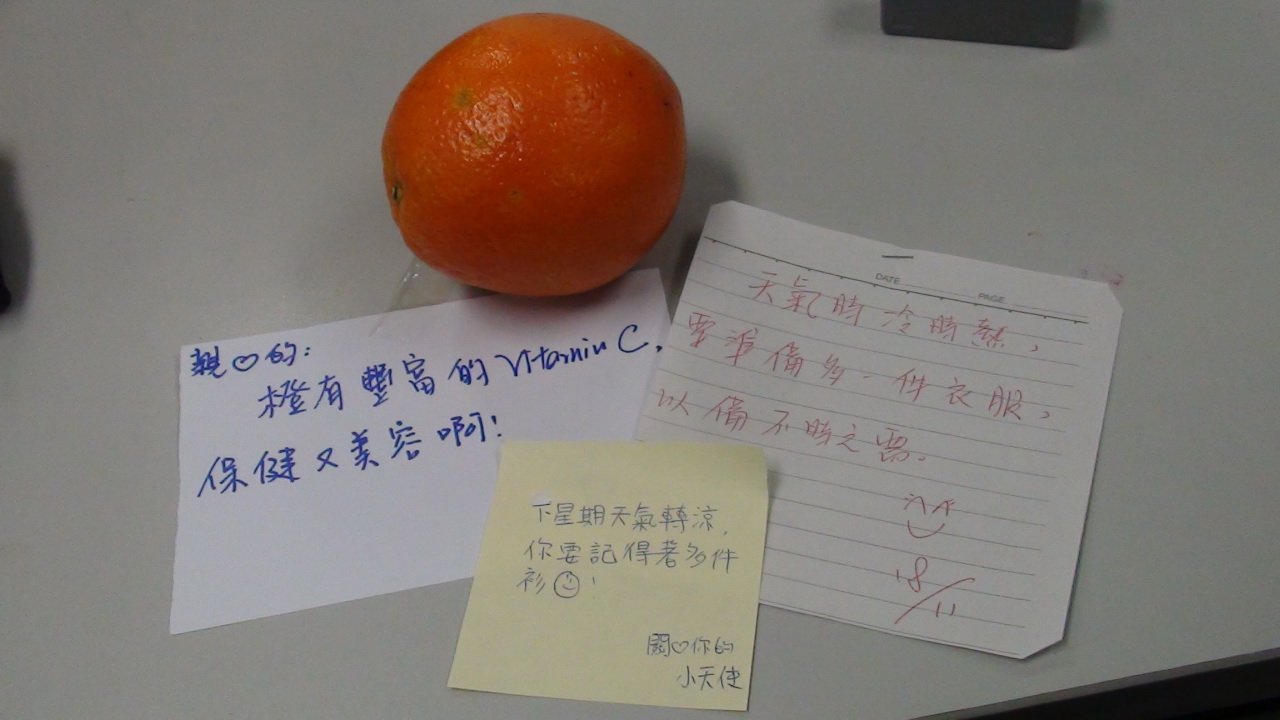 親♡的:
橙有豐富的Vitamin C,
保健又美容啊!
DATE
PAGE
天氣時冷時熱,
要準備多一件衣服,
以備不時之需。
18/11
下星期天氣轉涼,
你要記得著多件
衫☺!
關♡你的
小天使